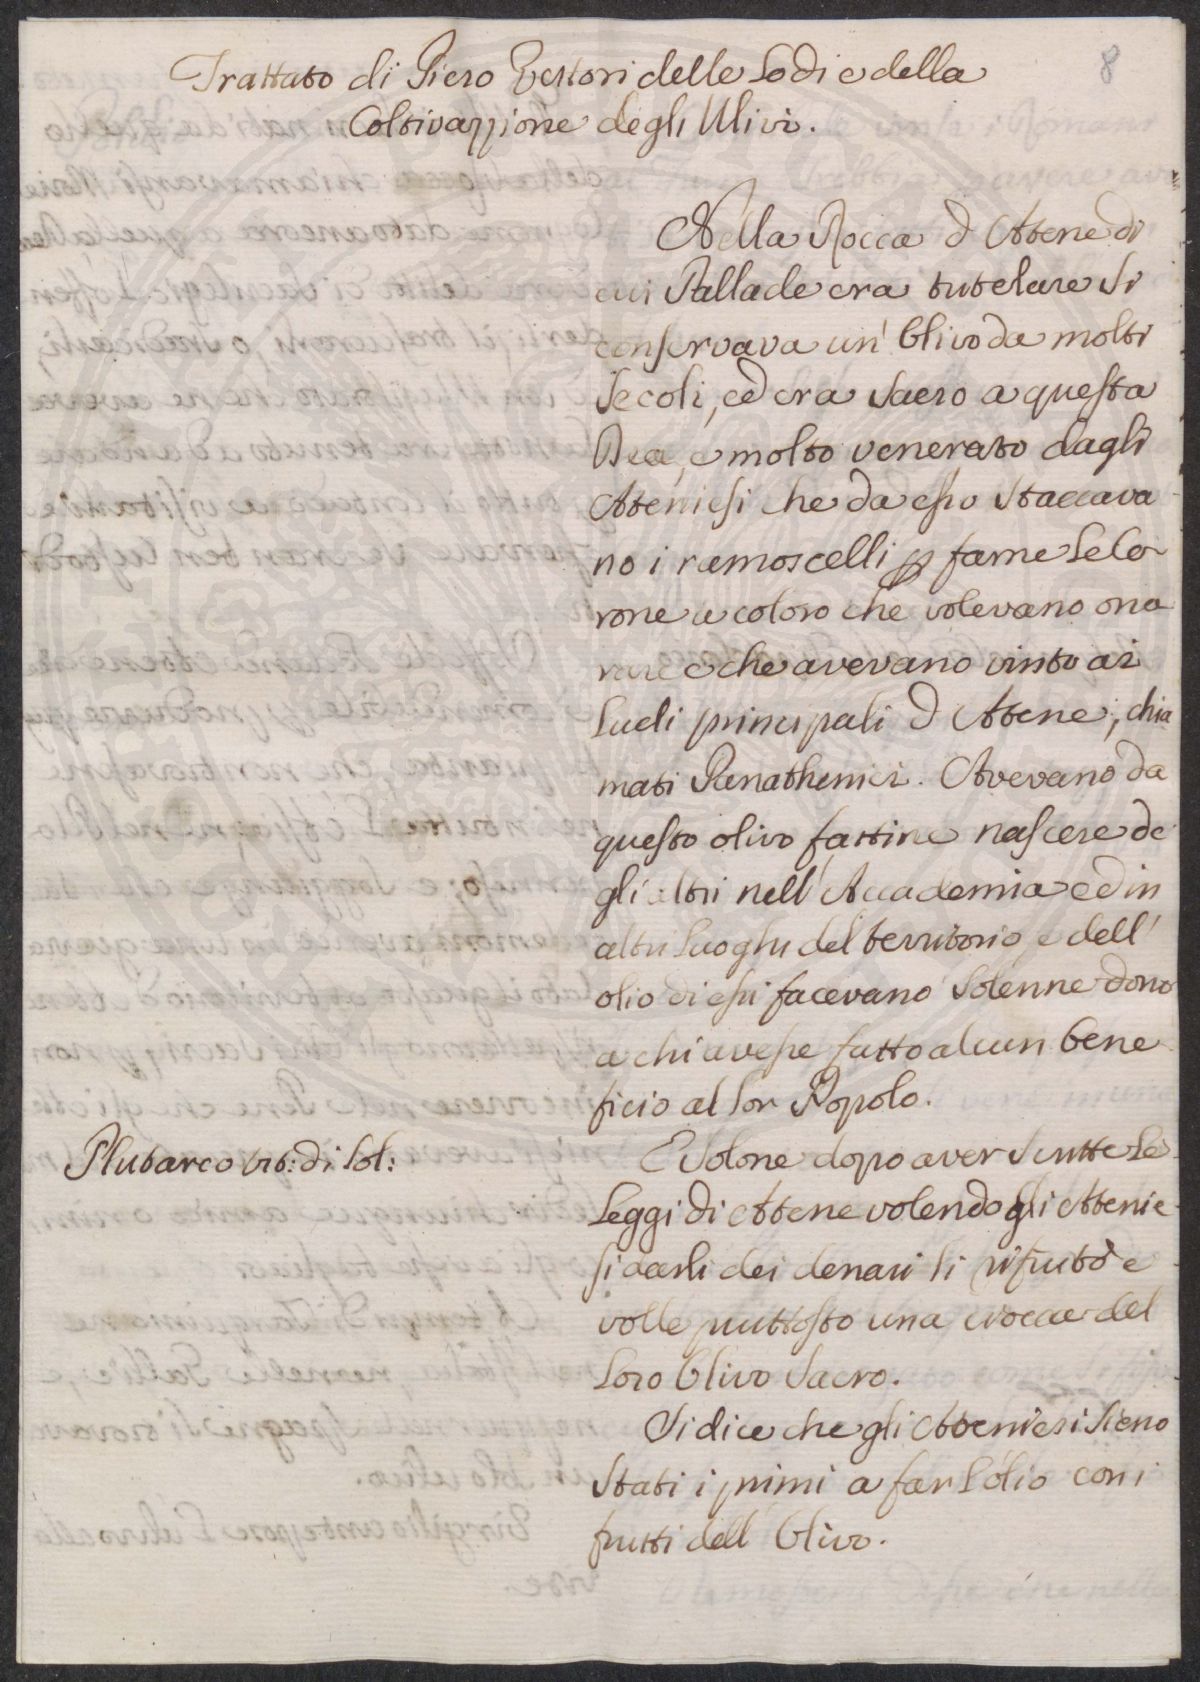 8
Trattato di Piero Vettori delle Lodi e della
Coltivazzione degli Ulivi.
Nella Rocca d'Atene di
cui Pallade era tutelare si
conservava un' Ulivo da molti
secoli, ed era sacro a questa
Dea, e molto venerato dagli
Ateniesi che da esso staccava
no i ramoscelli p farne le Co
rone a coloro che volevano ono
rare e che avevano vinto ai
Ludi principali d'Atene, chia
mati Panathenici. Avevano da
questo olivo fattine nascere de
gli altri nell'Accademia ed in
altri luoghi del territorio, e dell'
olio di essi facevano solenne dono
a chi avesse fatto alcun bene
ficio al lor Popolo.
Plutarco vit: di Sol:
E Solone dopo aver scritte le
Leggi di Atene volendo gli Atenie
si darli dei denari li rifiutò e
volle piuttosto una ciocca del
loro Ulivo sacro.
Si dice che gli Ateniesi sieno
stati i primi a far l'olio con i
frutti dell' Ulivo.